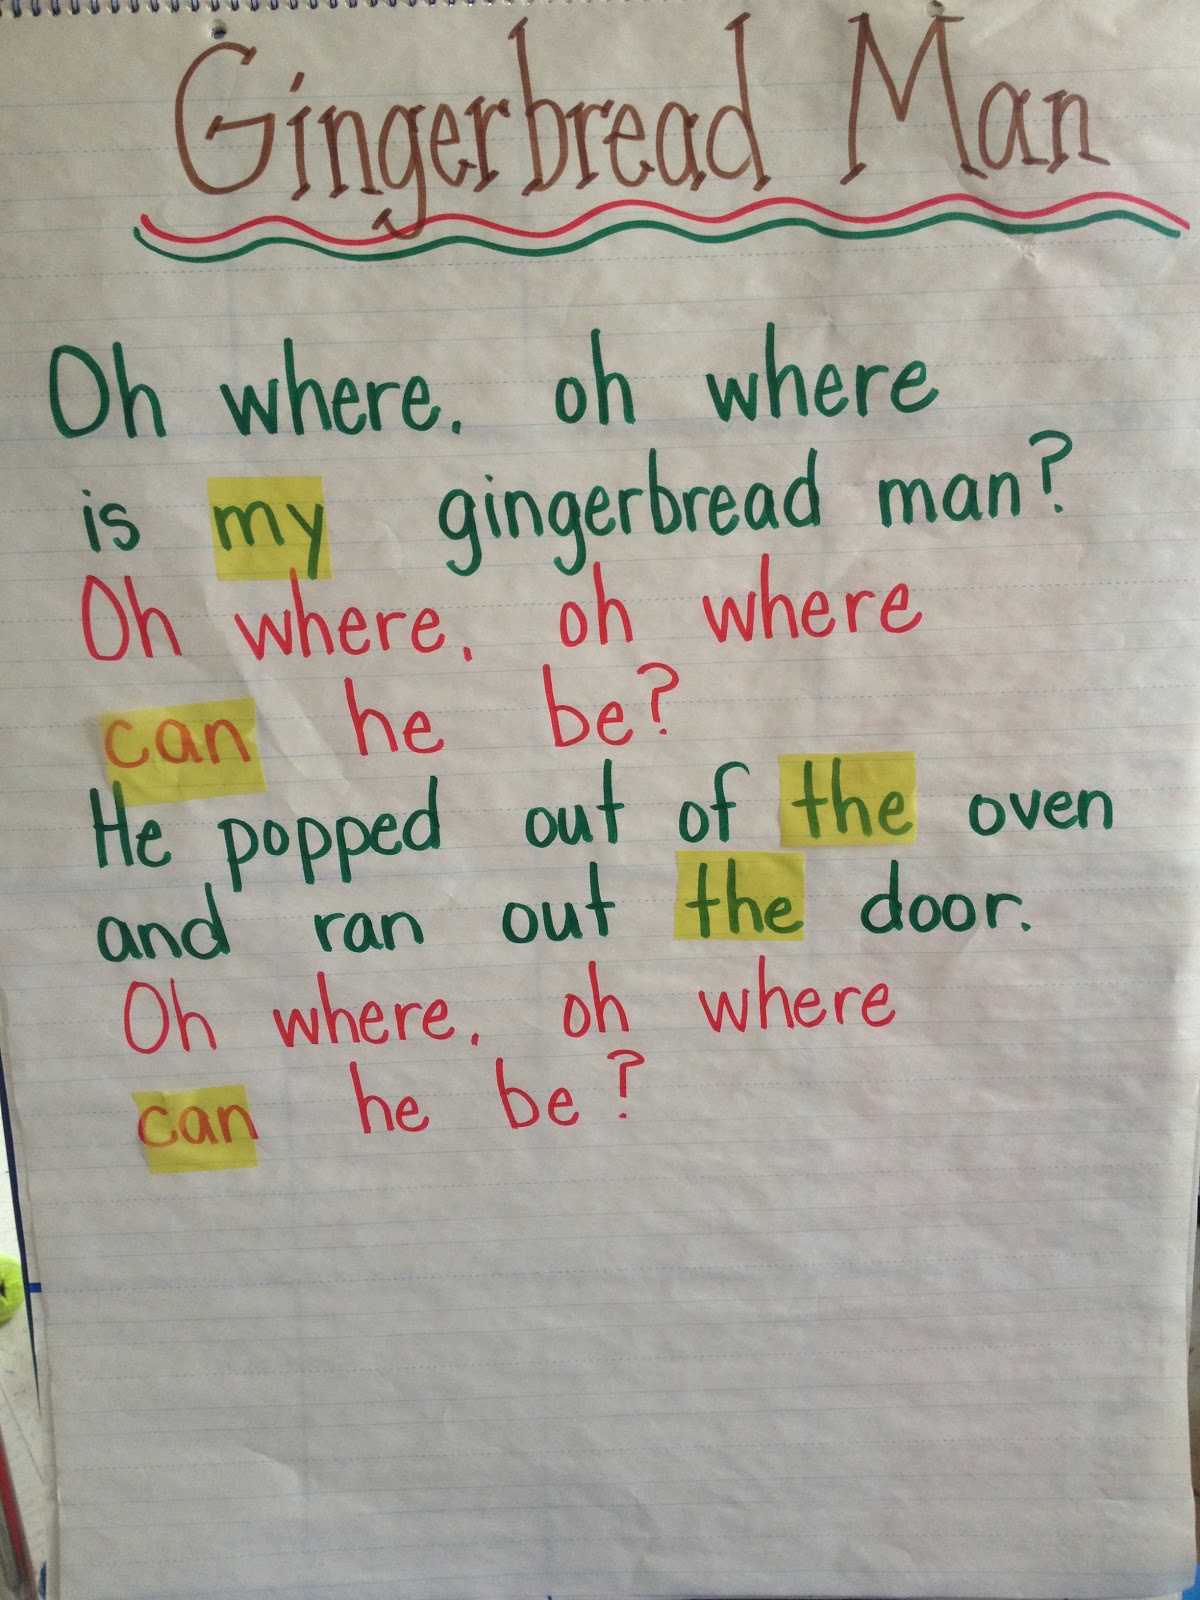 Gingerbread Man
Oh where, oh where
is my gingerbread man?
Oh where, oh where
can he be?
He popped out of the oven
and ran out the door.
Oh where, oh where
can he be?